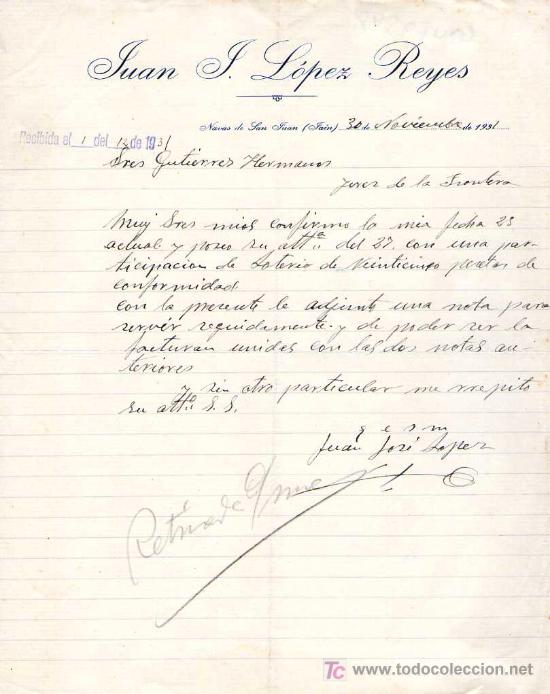 Juan J. López Reyes
Navas de San Juan (Jaén) 30 de Noviembre de 1931
Recibida el 1 del 12 de 1931
Sres Gutiérres Hermanos
Jerez de la Frontera
Muy Sres mios confirmo la mia fecha 23
actual y poseo su attª del 27, con una par-
ticipacion de Loteria de veinticinco pesetas de
conformidad
con la presente le adjunto una nota para
servir seguidamente y de poder ser la
facturan unidas con las dos notas an-
teriores
y sin otro particular me rrepito
su attº S. S.
q e s m
Juan José Lopez
TC www.todocoleccion.net